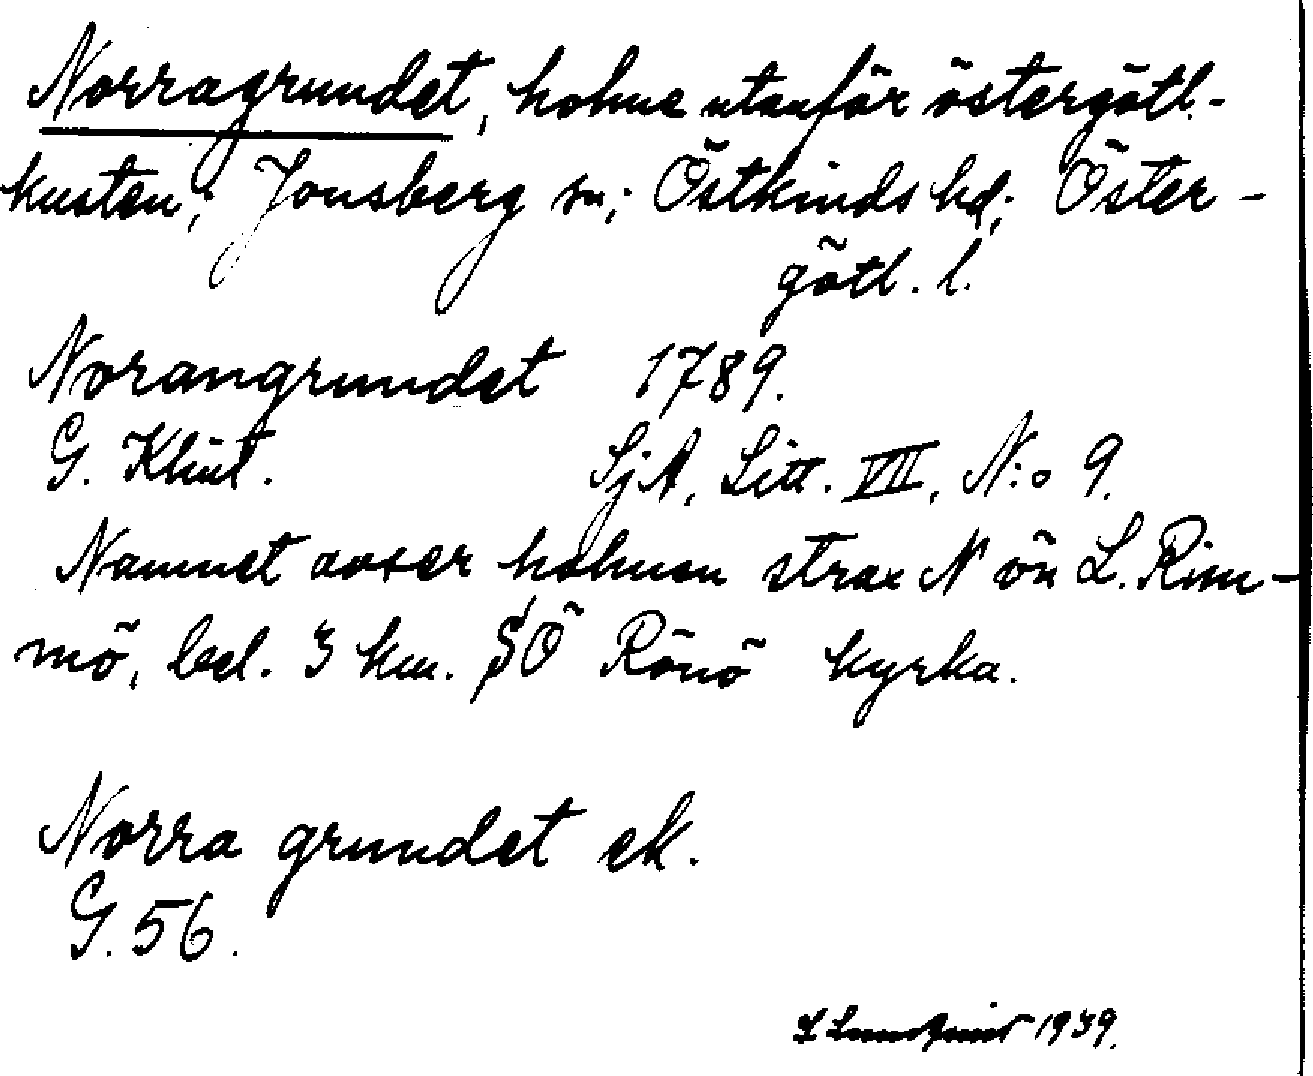 Norragrundet, holme utanför östergötl.-
kusten; Jonsberg sn; Östkinds hd; Öster-
götl. l.
Norangrundet 1789.
G. Klint. SjA, Litt. VII, N:o 9.
Namnet avser holmen strax N ön L. Rim-
mö, bel. 3 km. SÖ Rönö kyrka.
Norra grundet ek.
G. 56.
Lundquist 1939.